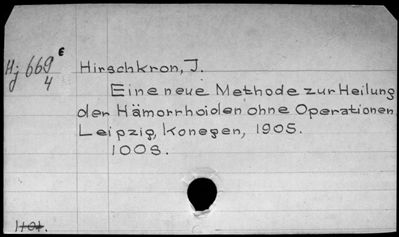 Hj 669 e
4
Hirschkron, J.
Eine neue Methode zur Heilung
der Hämorrhoiden ohne Operationen
Leipzig, Konegen, 1905.
100s.